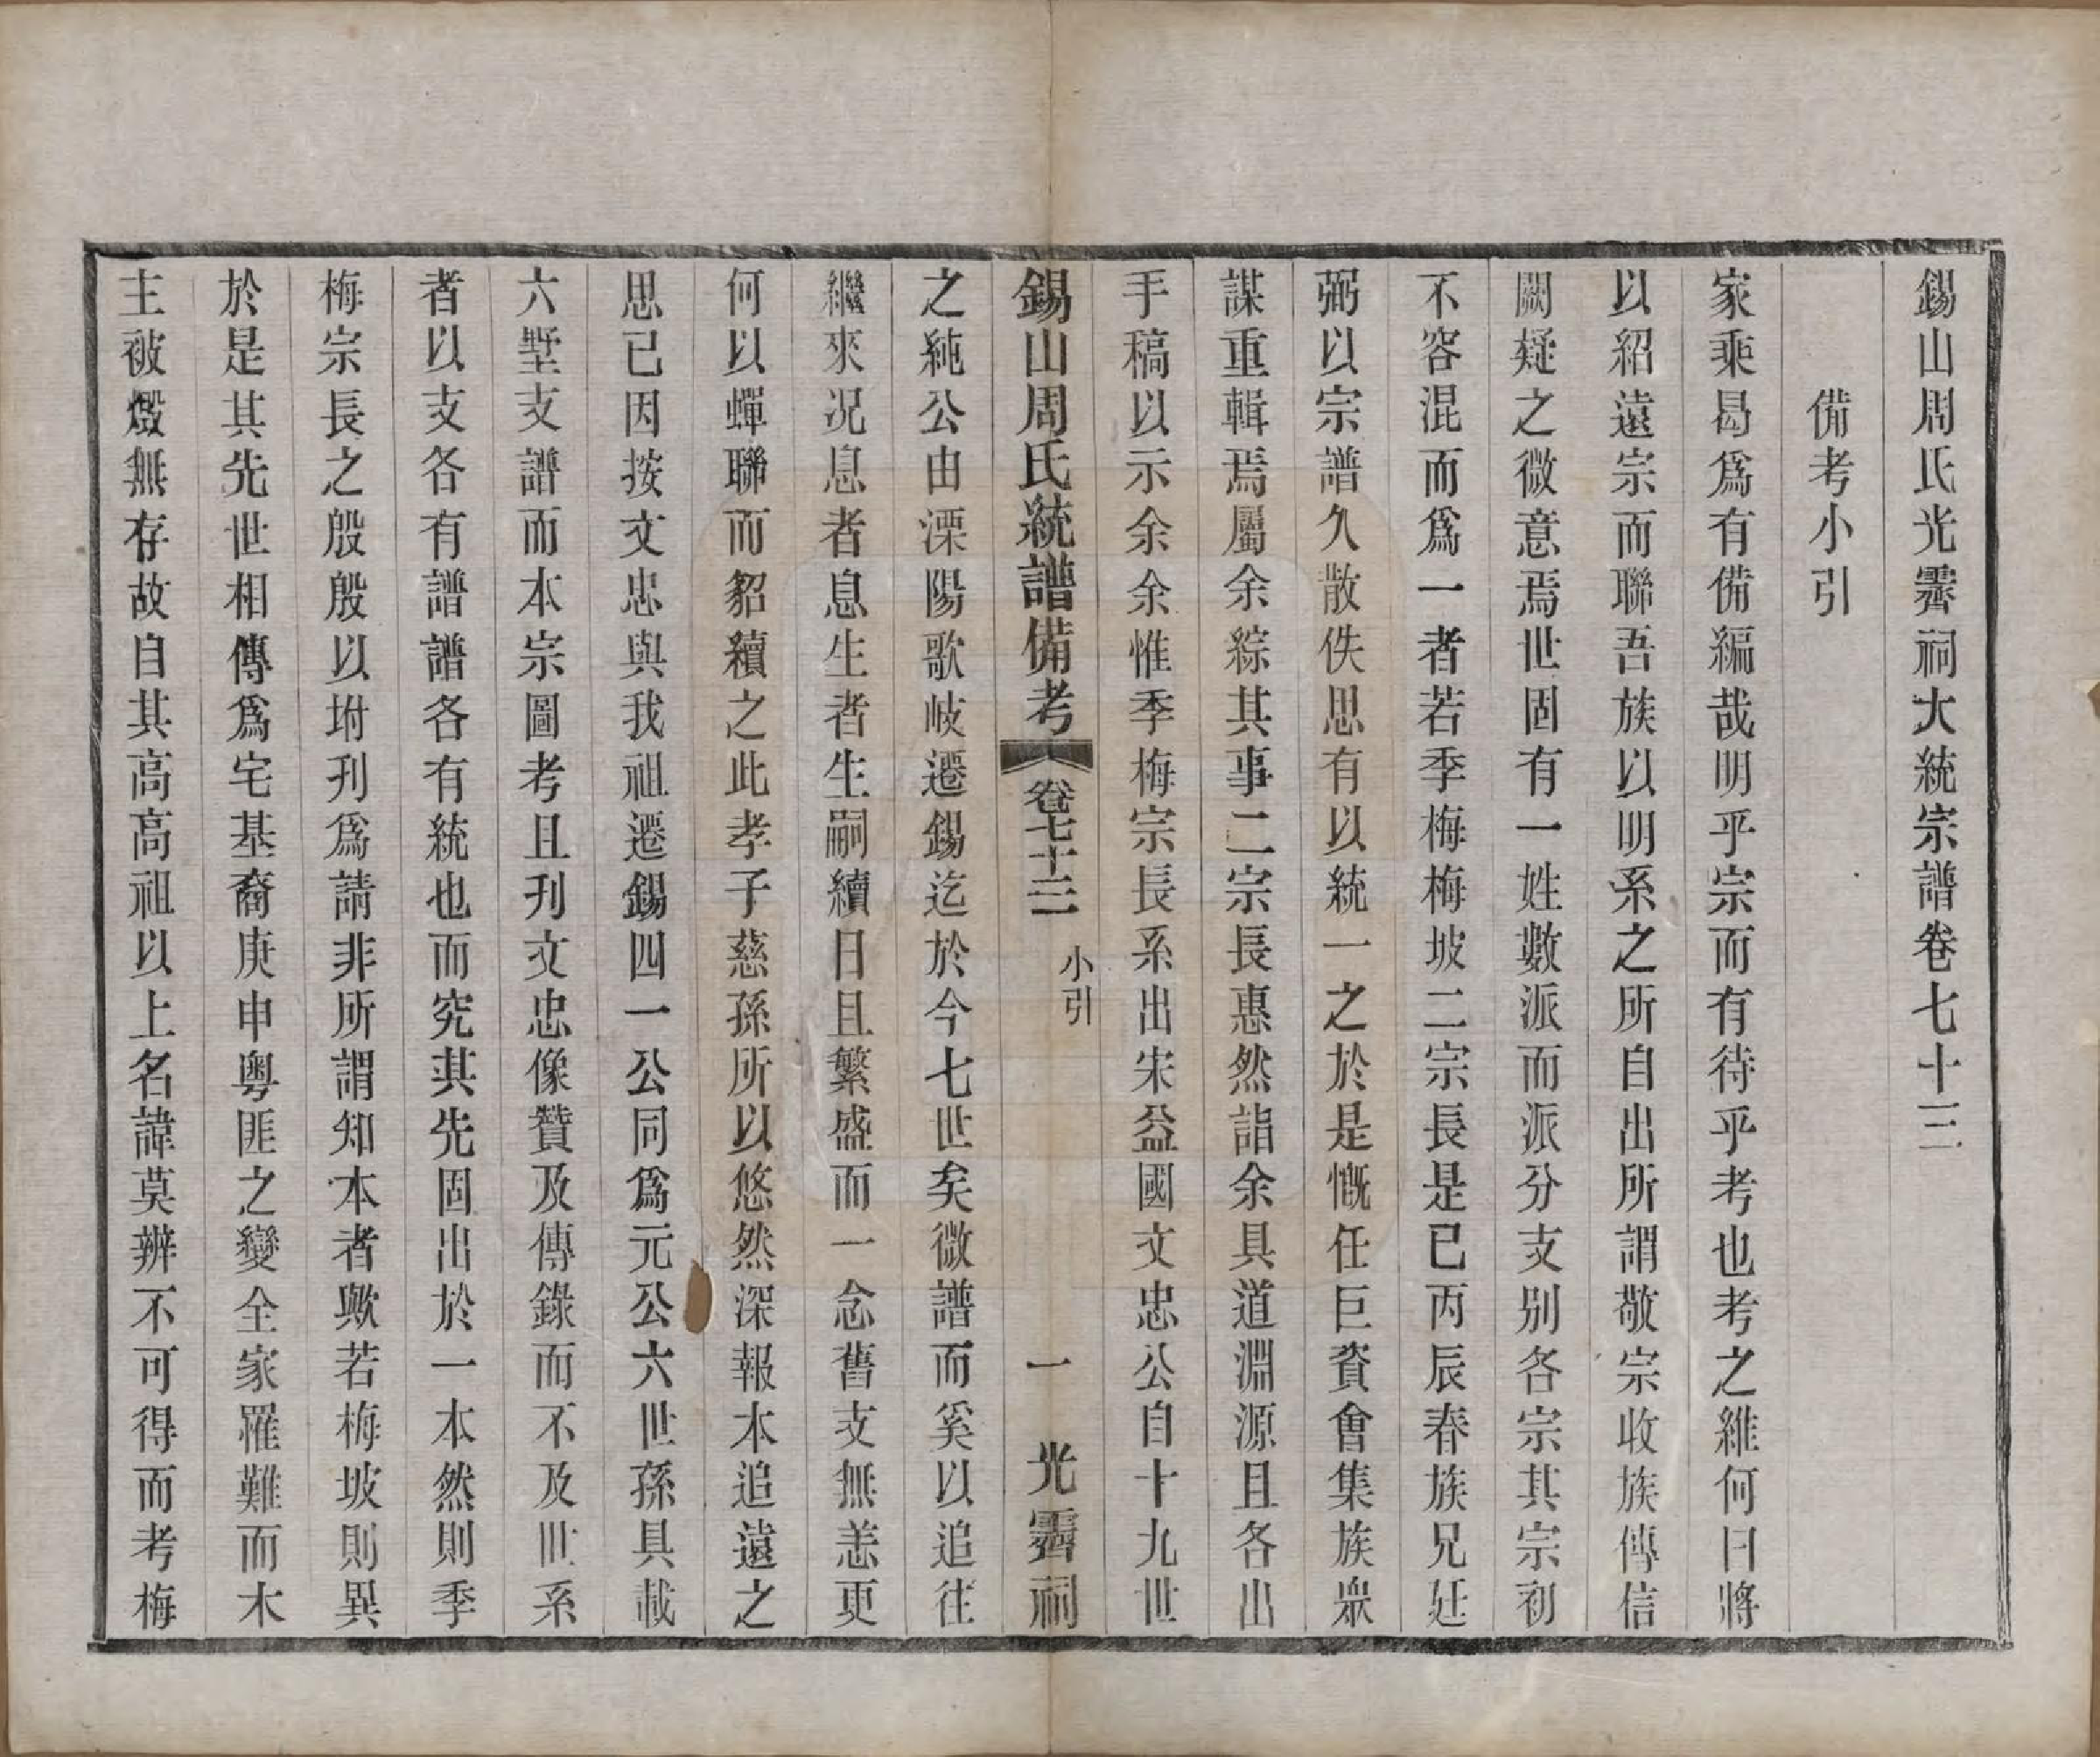 錫山周氏光霽祠大統宗譜卷七十三
備考小引
家乘曷爲有備編哉明乎宗而有待乎考也考之維何曰將
以紹遠宗而聯吾族以明系之所自出所謂敬宗收族傳信
闕疑之微意焉世固有一姓數派而派分支别各宗其宗初
不容混而爲一者若季梅梅坡二宗長是已丙辰春族兄廷
弼以宗譜久散佚思有以統一之於是慨任巨資會集族衆
謀重輯焉屬余綜其事二宗長惠然詣余具道淵源且各出
手稿以示余余惟季梅宗長系出宋益國文忠公自十九世
錫山周氏統譜備考 卷七十三 小引 一 光霽祠
之純公由溧陽歌岐遷錫迄於今七世矣微譜而奚以追往
繼來况息者息生者生嗣續日且繁盛而一念舊支無恙更
何以蟬聯而貂續之此孝子慈孫所以悠然深報本追遠之
思已因按文忠與我祖遷錫四一公同爲元公六世孫具載
六墅支譜而本宗圖考且刋文忠像贊及傳錄而不及世系
者以支各有譜譜各有統也而究其先固出於一本然則季
梅宗長之殷殷以坿刋爲請非所謂知本者歟若梅坡則異
於是其先世相傳爲宅基裔庚申粤匪之變全家罹難而木
主被燬無存故自其高高祖以上名諱莫辨不可得而考梅